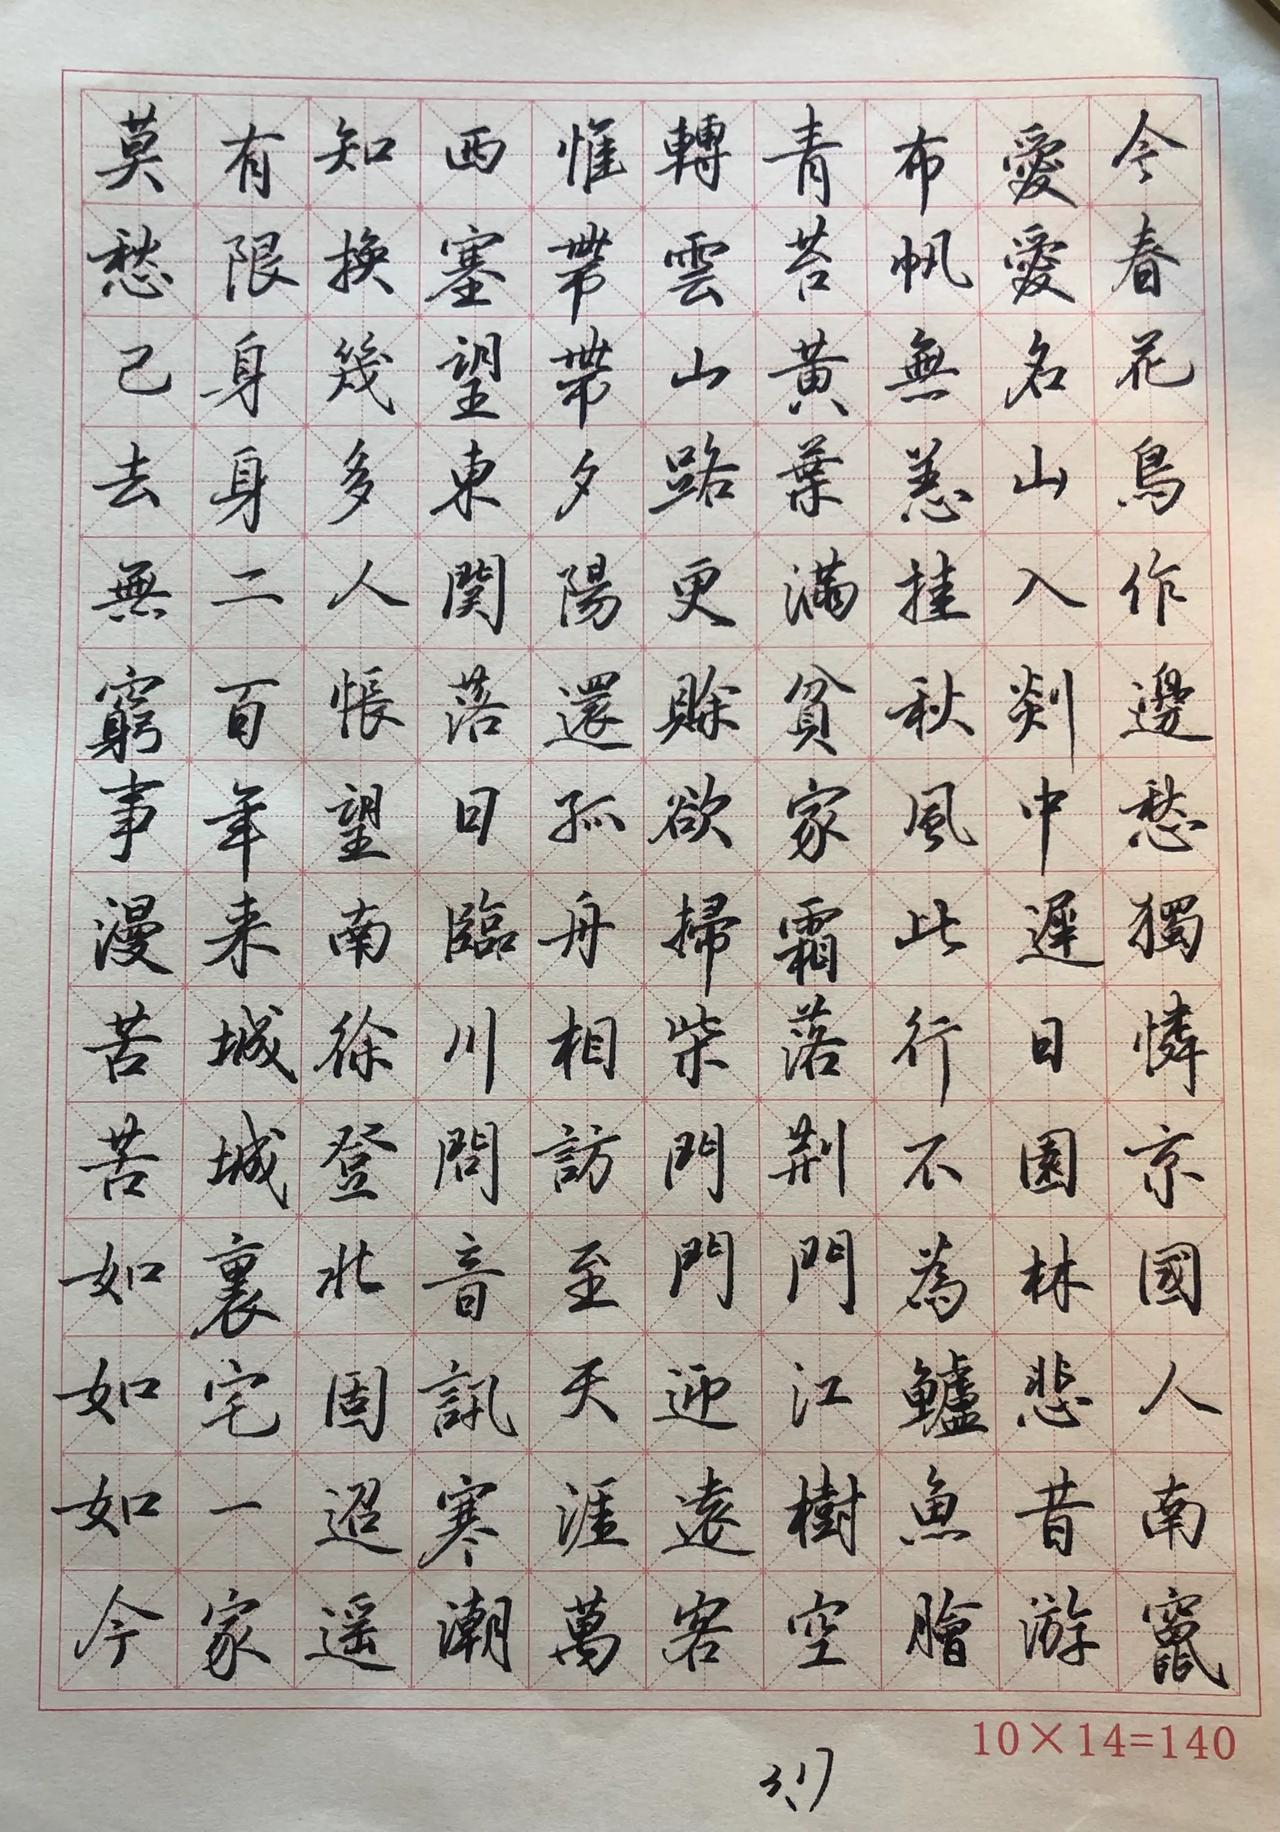 今春花鳥作邊愁獨憐京國人南竄
愛愛名山入剡中遲日園林悲昔游
布帆無恙挂秋風此行不為鱸魚膾
青苔黃葉滿貧家霜落荆門江樹空
轉雲山路更賒欲掃柴門門迎遠客
惟帶帶夕陽還孤舟相訪至天涯萬
西塞望東関落日臨川問音訊寒潮
知換幾多人悵望南徐登北固迢遥
有限身身二百年来城城裏宅一家
莫愁己去無窮事漫苦苦如如如今
10×14=140
3.17